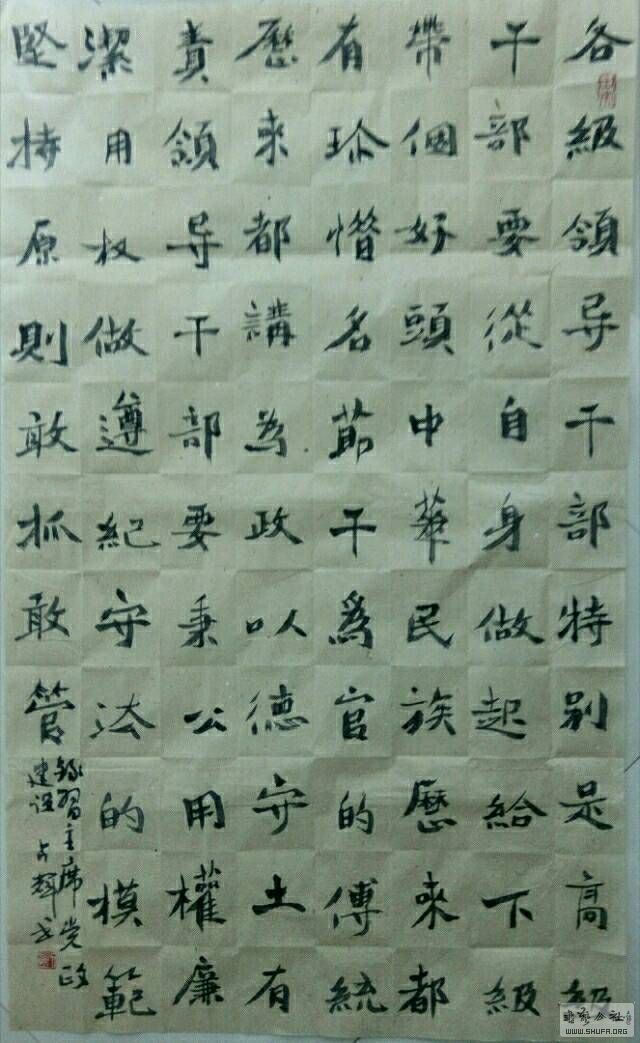 各級領导干部特别是高級
干部要從自身做起給下級
帶個好頭中華民族歷來都
有珍惜名節干為官的傳統
歷来都講為政以德守土有
責領导干部要秉公用權廉
潔用权做遵紀守法的模範
堅持原則敢抓敢管
錄習主席党政
建設
WWW.SHUFA.ORG